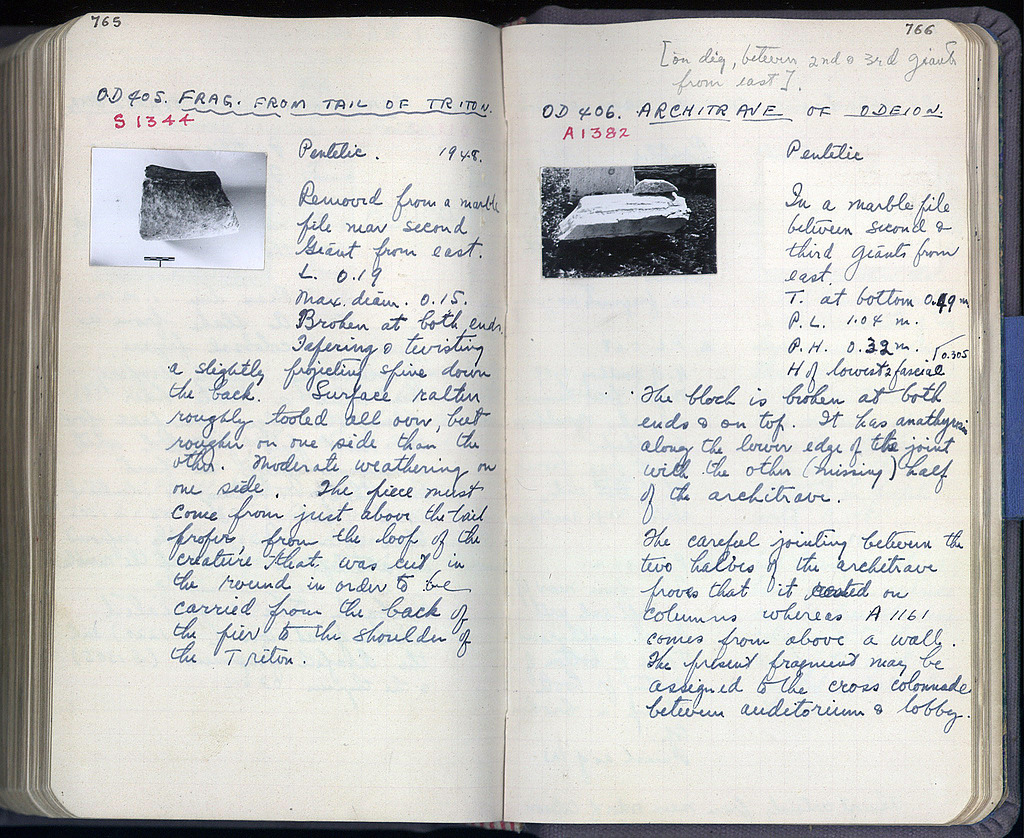 765
OD 405. FRAG. FROM TAIL OF TRITON.
S 1344
Pentelic. 1948.
Removed from a marble
pile near second
Giant from east.
L. 0.19
Max. diam. 0.15.
Broken at both ends.
Tapering & twisting
a slightly projecting spine down
the back. Surface rather
roughly tooled all over, but
rougher on one side than the
other. Moderate weathering on
one side. The piece must
come from just above the tail
proper, from the loop of the
creature that was cut in
the round in order to be
carried from the back of
the pier to the shoulder of
the Triton.
766
[on dig, between 2nd & 3rd giants
from east].
OD 406. ARCHITRAVE OF ODEION.
A 1382
Pentelic
In a marble pile
between second &
third giants from
east.
T. at bottom 0.49 m.
P. L. 1.04 m.
P. H. 0.32 m.
H of lowest 2 fasciae 0.305
The block is broken at both
ends & on top. It has anathyrosis
along the lower edge of the joint
with the other (missing) half
of the architrave.
The careful jointing between the
two halves of the architrave
proves that it rested on
columns whereas A 1161
comes from above a wall.
The present fragment may be
assigned to the cross colonnade
between auditorium & lobby.